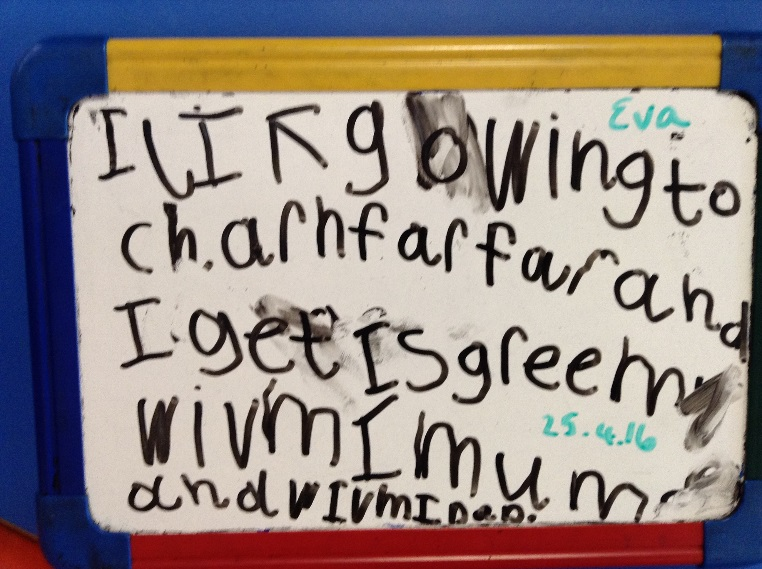 Eva
I lIK gowing to
ch.arhfarfar and
I get Isgreem
wivmI mum
25.4.16
and wIvmI DaD.